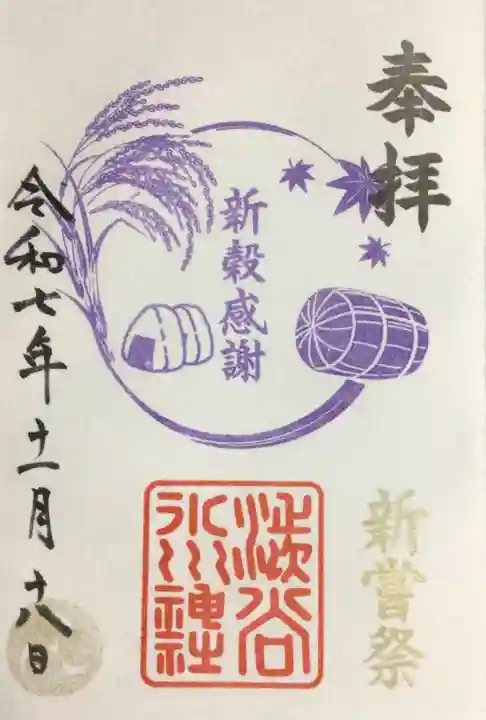 奉拝
新嘗祭
新穀感謝
澁谷
氷川神社
令和七年十一月十八日